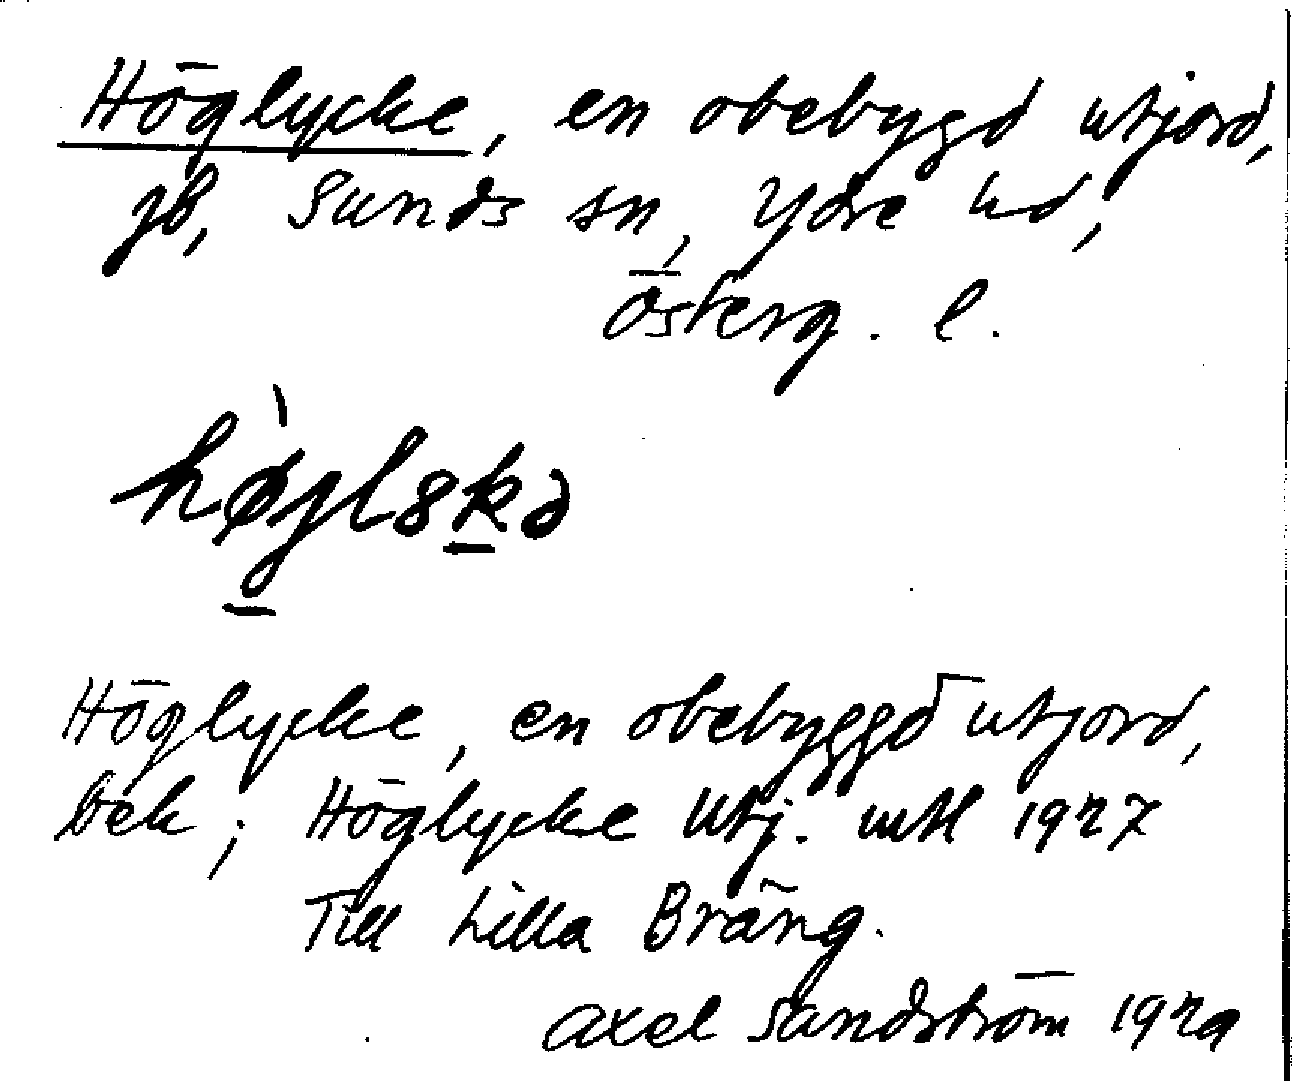 Höglycke, en obebygd utjord,
jb, Sunds sn, Ydre hd,
Österg. l.
hø̀jlskə
Höglycke, en obebyggd utjord,
bek; Höglycke Utj. mtl 1927
Till Lilla Bräng.
Axel Sandström 1929